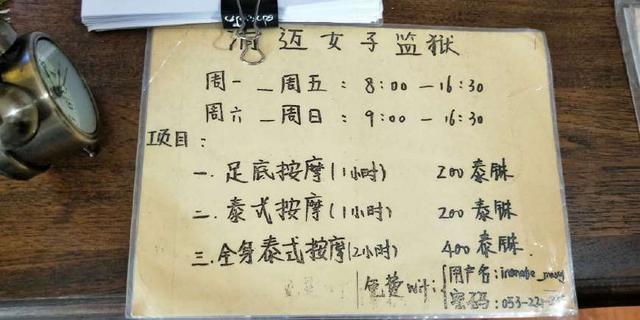 清迈女子监狱
周一 — 周五：8:00 — 16:30
周六 — 周日：9:00 — 16:30
项目：
一. 足底按摩(1小时) 200泰铢
二. 泰式按摩(1小时) 200泰铢
三. 全身泰式按摩(2小时) 400泰铢
免费wifi: 用户名:
密码: 053-221-